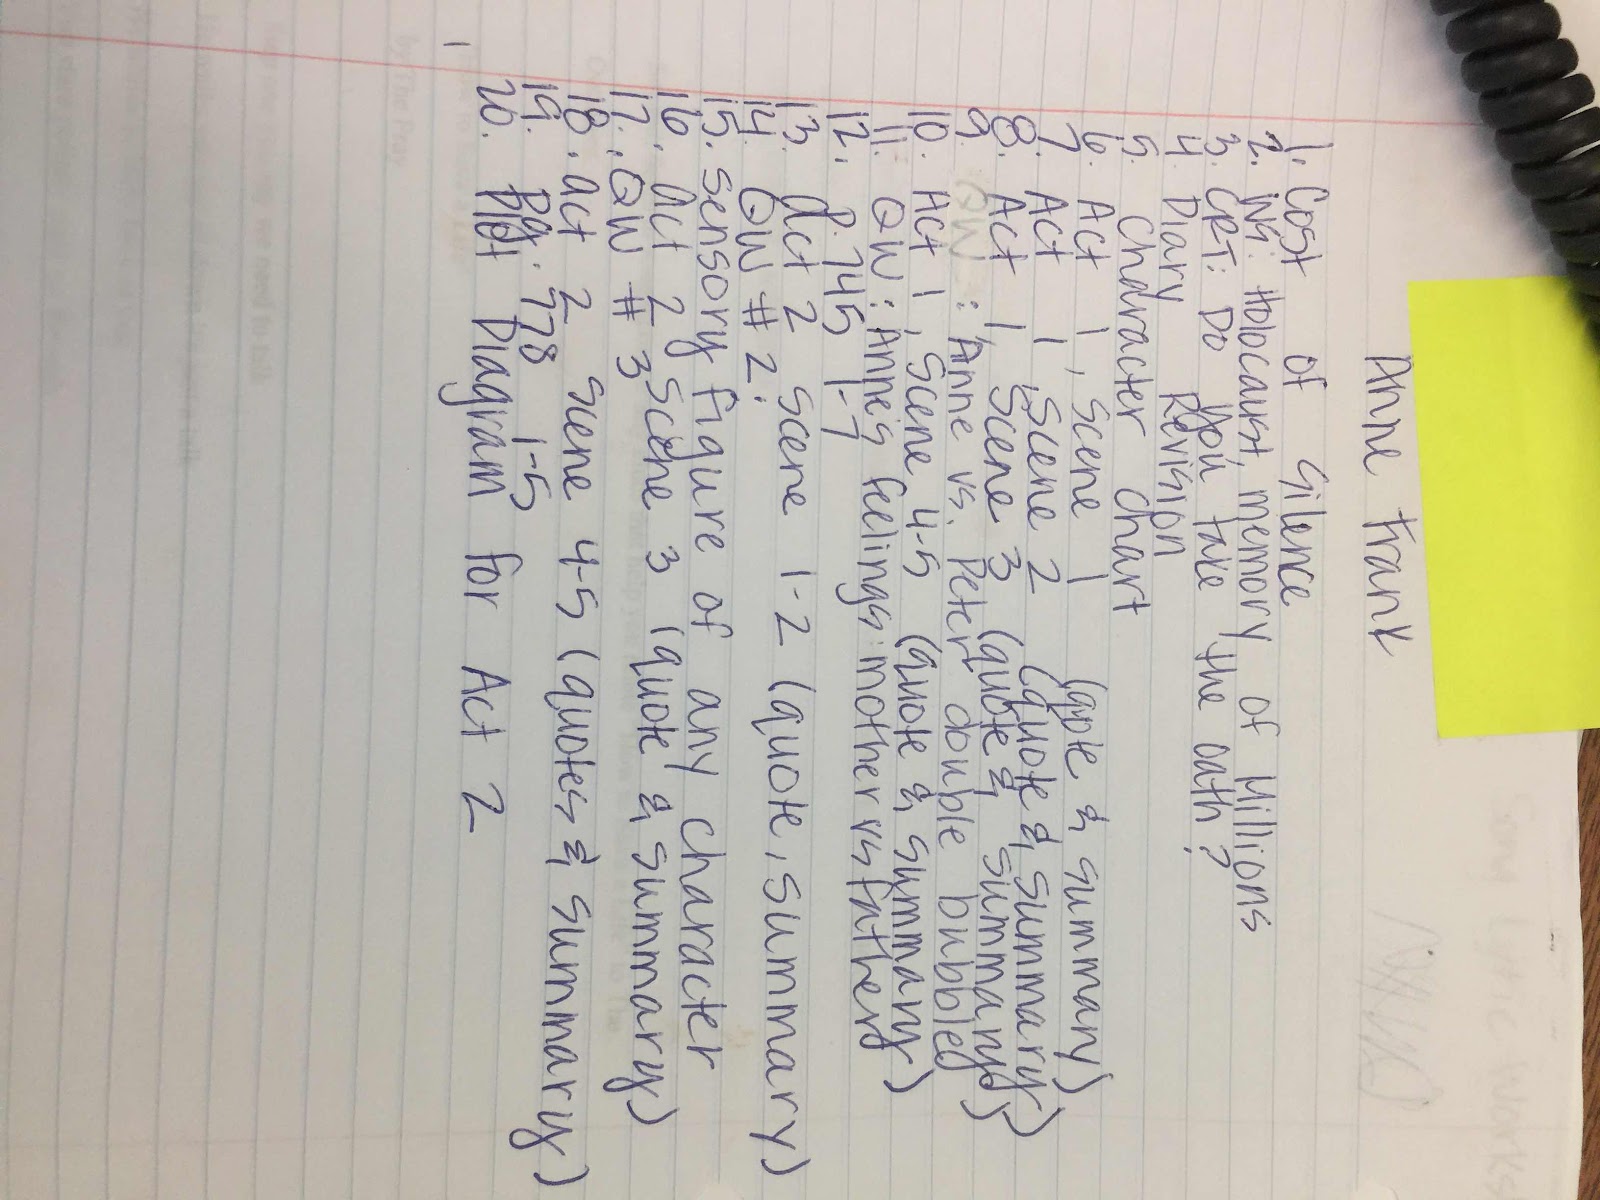 Anne Frank
1. Cost of Silence
2. NG: Holocaust, memory of Millions
3. CRT: Do you take the oath?
4. Diary Revision
5. Character chart
6. Act 1, Scene 1 (qote & summary)
7. Act 1, Scene 2 (quote & summary)
8. Act 1, Scene 3 (quote & summary)
9. QW : Anne vs. Peter double bubble
10. Act 1, Scene 4-5 (quote & summary)
11. QW: Anne's feelings: mother vs father
12. P. 745 1-7
13. Act 2 Scene 1-2 (quote, summary)
14. QW # 2:
15. Sensory figure of any character
16. Act 2 Scene 3 (quote & summary)
17. QW # 3
18. Act 2 Scene 4-5 (quotes & summary)
19. Pg. 778 1-5
20. Plot Diagram for Act 2